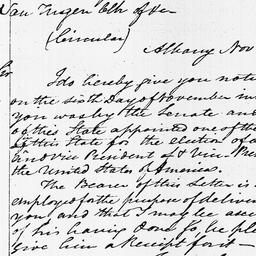 Van Ingen Clk of
(Circular)
Albany Nov
Sir
I do hereby give you note
on the sixth Day of November in
you was by the Senate and
of this State appointed one of the
of this State for the election of a
and Vice President of
the United States of America.
The Bearer of this Letter is
employed for the purpose of deliver
you, and that I may be assu
of his having done so, be ple
give him a Receipt for it —